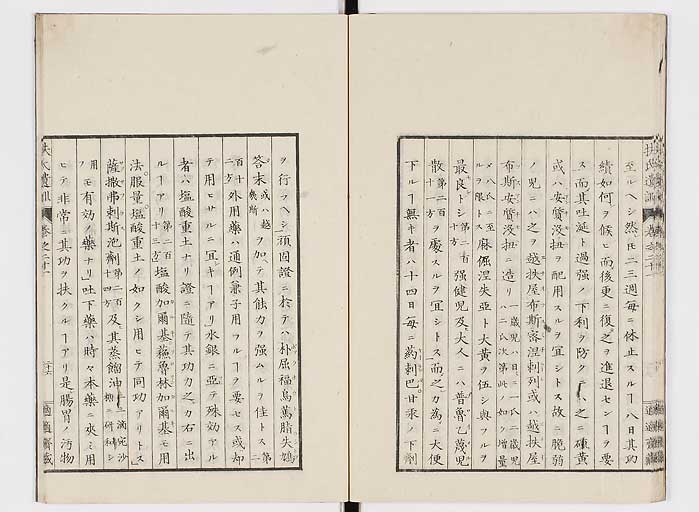 至ルヘシ然𪜈二三週毎ニ休止スルヿ八日其功
績如何ヲ候ヒ而後更ニ復之ヲ進退センヿヲ要
ス而其吐涎ト過强ノ下利ヲ防クニハ之ニ礦黄
或ハ安質没扭ヲ配用スルヲ宜シトス故ニ脆弱
ノ児ニハ之ヲ越扶屋布斯密涅剌列或ハ越扶屋
布斯安質没扭ニ造リ
ヲ限トス麻倔涅失亜ト大黄ヲ伍シ與フルヲ
最良トシ第二百十方強健児及大人ニハ普魯乙蔑児
散第二百十一方ヲ處スルヲ宜シトス而之カ為ニ大便
下ルヿ無キ者ハ十四日毎ニ葯剌巴甘汞ノ下劑
ヲ行フヘシ頑固證ニ於テハ朴屈福烏篤脂失鳩
答末或ハ越幾斯ヲ加テ其飿力ヲ强ムルヲ佳トス第二
百十二方外用藥ハ通例兼子用フルヿヲ要セス或却
テ用ヒサルニ宜キヿアリ水銀ニ亞テ殊効アル
者ハ塩酸重土ナリ證ニ隨テ其功力之カ右ニ出
ルヿアリ第二百十三方塩酸加爾基蘊魯林加爾基モ用
法服量塩酸重土ノ如クシ用ヒテ同功アリトス
薩撒弗剌斯泡劑第二百十四方及其蒸餾油
用モ有効ノ藥ナリ吐下藥ハ時々本藥ニ夾ミ用
ヒテ非常ニ其功ヲ扶クルヿアリ是腸胃ノ汚物
扶氏遺訓 卷之二十一
適適齋藏